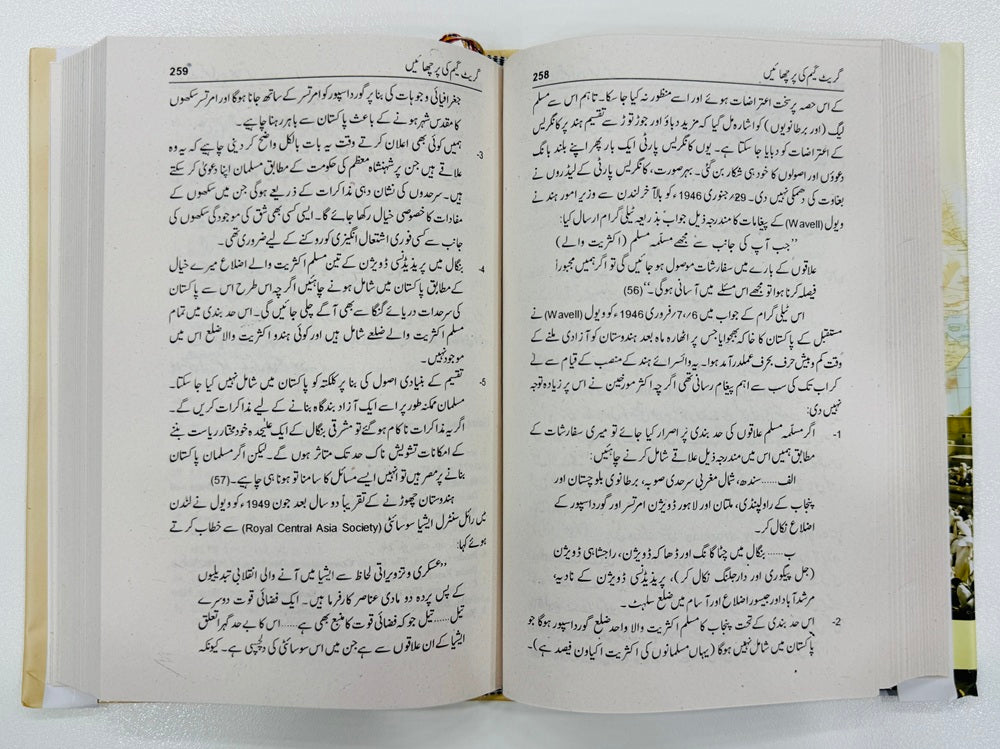 258
گریٹ گیم کی پرچھائیں
کے اس حصہ پر سخت اعتراضات ہوئے اور اسے منظور نہ کیا جا سکا۔ تاہم اس سے مسلم
لیگ (اور برطانویوں) کو اشارہ مل گیا کہ مزید دباؤ اور جوڑ توڑ سے تقسیم ہند پر کانگریس
کے اعتراضات کو دبایا جا سکتا ہے۔ یوں کانگریس پارٹی ایک بار پھر اپنے بلند بانگ
دعوؤں اور اصولوں کا خود ہی شکار بن گئی۔ بہرصورت، کانگریس پارٹی کے لیڈروں نے
بغاوت کی دھمکی نہیں دی۔ 29؍ جنوری 1946ء کو بالآخر لندن سے وزیر امور ہند نے
ویول (Wavell) کے پیغامات کا مندرجہ ذیل جواب بذریعہ ٹیلی گرام ارسال کیا:
’’جب آپ کی جانب سے مجھے مسلّمہ مسلم (اکثریت والے)
علاقوں کے بارے میں سفارشات موصول ہو جائیں گی تو اگر ہمیں مجبوراً
فیصلہ کرنا ہوا تو مجھے اس مسئلے میں آسانی ہوگی۔‘‘(56)
اس ٹیلی گرام کے جواب میں 6،7؍فروری 1946ء کو ویول (Wavell) نے
مستقبل کے پاکستان کا خاکہ بھجوایا جس پر اٹھارہ ماہ بعد ہندوستان کو آزادی ملنے کے
وقت کم و بیش حرف بحرف عملدرآمد ہوا۔ یہ وائسرائے ہند کے منصب کے قیام سے لے
کر اب تک کی سب سے اہم پیغام رسانی تھی اگرچہ اکثر مورخین نے اس پر زیادہ توجہ
نہیں دی:
1- اگر مسلّمہ مسلم علاقوں کی حد بندی پر اصرار کیا جائے تو میری سفارشات کے
مطابق ہمیں اس میں مندرجہ ذیل علاقے شامل کرنے چاہئیں:
الف...... سندھ، شمال مغربی سرحدی صوبہ، برطانوی بلوچستان اور
پنجاب کے راولپنڈی، ملتان اور لاہور ڈویژن امرتسر اور گورداسپور کے
اضلاع نکال کر۔
ب...... بنگال میں چٹاگانگ اور ڈھاکہ ڈویژن، راجشاہی ڈویژن
(جل پیگوری اور دارجلنگ نکال کر)، پریذیڈنسی ڈویژن کے نادیہ،
مرشد آباد اور جیسور اضلاع اور آسام میں ضلع سلہٹ۔
2- اس حد بندی کے تحت پنجاب کا مسلم اکثریت والا واحد ضلع گورداسپور ہوگا جو
پاکستان میں شامل نہیں ہوگا (یہاں مسلمانوں کی اکثریت اکیاون فیصد ہے)۔
259
گریٹ گیم کی پرچھائیں
جغرافیائی وجوہات کی بنا پر گورداسپور کو امرتسر کے ساتھ جانا ہوگا اور امرتسر سکھوں
کا مقدس شہر ہونے کے باعث پاکستان سے باہر رہنا چاہیے۔
3- ہمیں کوئی بھی اعلان کرتے وقت یہ بات بالکل واضح کر دینی چاہیے کہ یہ وہ
علاقے ہیں جن پر شہنشاہ معظم کی حکومت کے مطابق مسلمان اپنا دعویٰ کر سکتے
ہیں۔ سرحدوں کی نشان دہی مذاکرات کے ذریعے ہوگی جن میں سکھوں کے
مفادات کا خصوصی خیال رکھا جائے گا۔ ایسی کسی بھی شق کی موجودگی سکھوں کی
جانب سے کسی فوری اشتعال انگیزی کو روکنے کے لیے ضروری تھی۔
4- بنگال میں پریذیڈنسی ڈویژن کے تین مسلم اکثریت والے اضلاع میرے خیال
کے مطابق پاکستان میں شامل ہونے چاہئیں اگرچہ اس طرح اس سے پاکستان
کی سرحدات دریائے گنگا سے بھی آگے چلی جائیں گی۔ اس حد بندی میں تمام
مسلم اکثریت والے ضلعے شامل ہیں اور کوئی ہندو اکثریت والا ضلع اس میں
موجود نہیں۔
5- تقسیم کے بنیادی اصول کی بنا پر کلکتہ کو پاکستان میں شامل نہیں کیا جا سکتا۔
مسلمان ممکنہ طور پر اسے ایک آزاد بندگاہ بنانے کے لیے مذاکرات کریں گے۔
اگر یہ مذاکرات ناکام ہو گئے تو مشرقی بنگال کے ایک علیحدہ خودمختار ریاست بننے
کے امکانات تشویش ناک حد تک متاثر ہوں گے۔ لیکن اگر مسلمان پاکستان
بنانے پر مصر ہیں تو انہیں ایسے مسائل کا سامنا تو ہونا ہی چاہیے۔(57)
ہندوستان چھوڑنے کے تقریباً دو سال بعد جون 1949ء کو ویول نے لنڈن
میں رائل سنٹرل ایشیا سوسائٹی (Royal Central Asia Society) سے خطاب کرتے
ہوئے کہا:
’’عسکری و تزویراتی لحاظ سے ایشیا میں آنے والی انقلابی تبدیلیوں
کے پس پردہ دو مادی عناصر کارفرما ہیں۔ ایک فضائی قوت دوسرے
تیل...... تیل جو کہ فضائی قوت کا منبع بھی ہے...... اس کا بے حد گہرا تعلق
ایشیا کے ان علاقوں سے ہے جن میں اس سوسائٹی کی دلچسپی ہے۔ کیونکہ